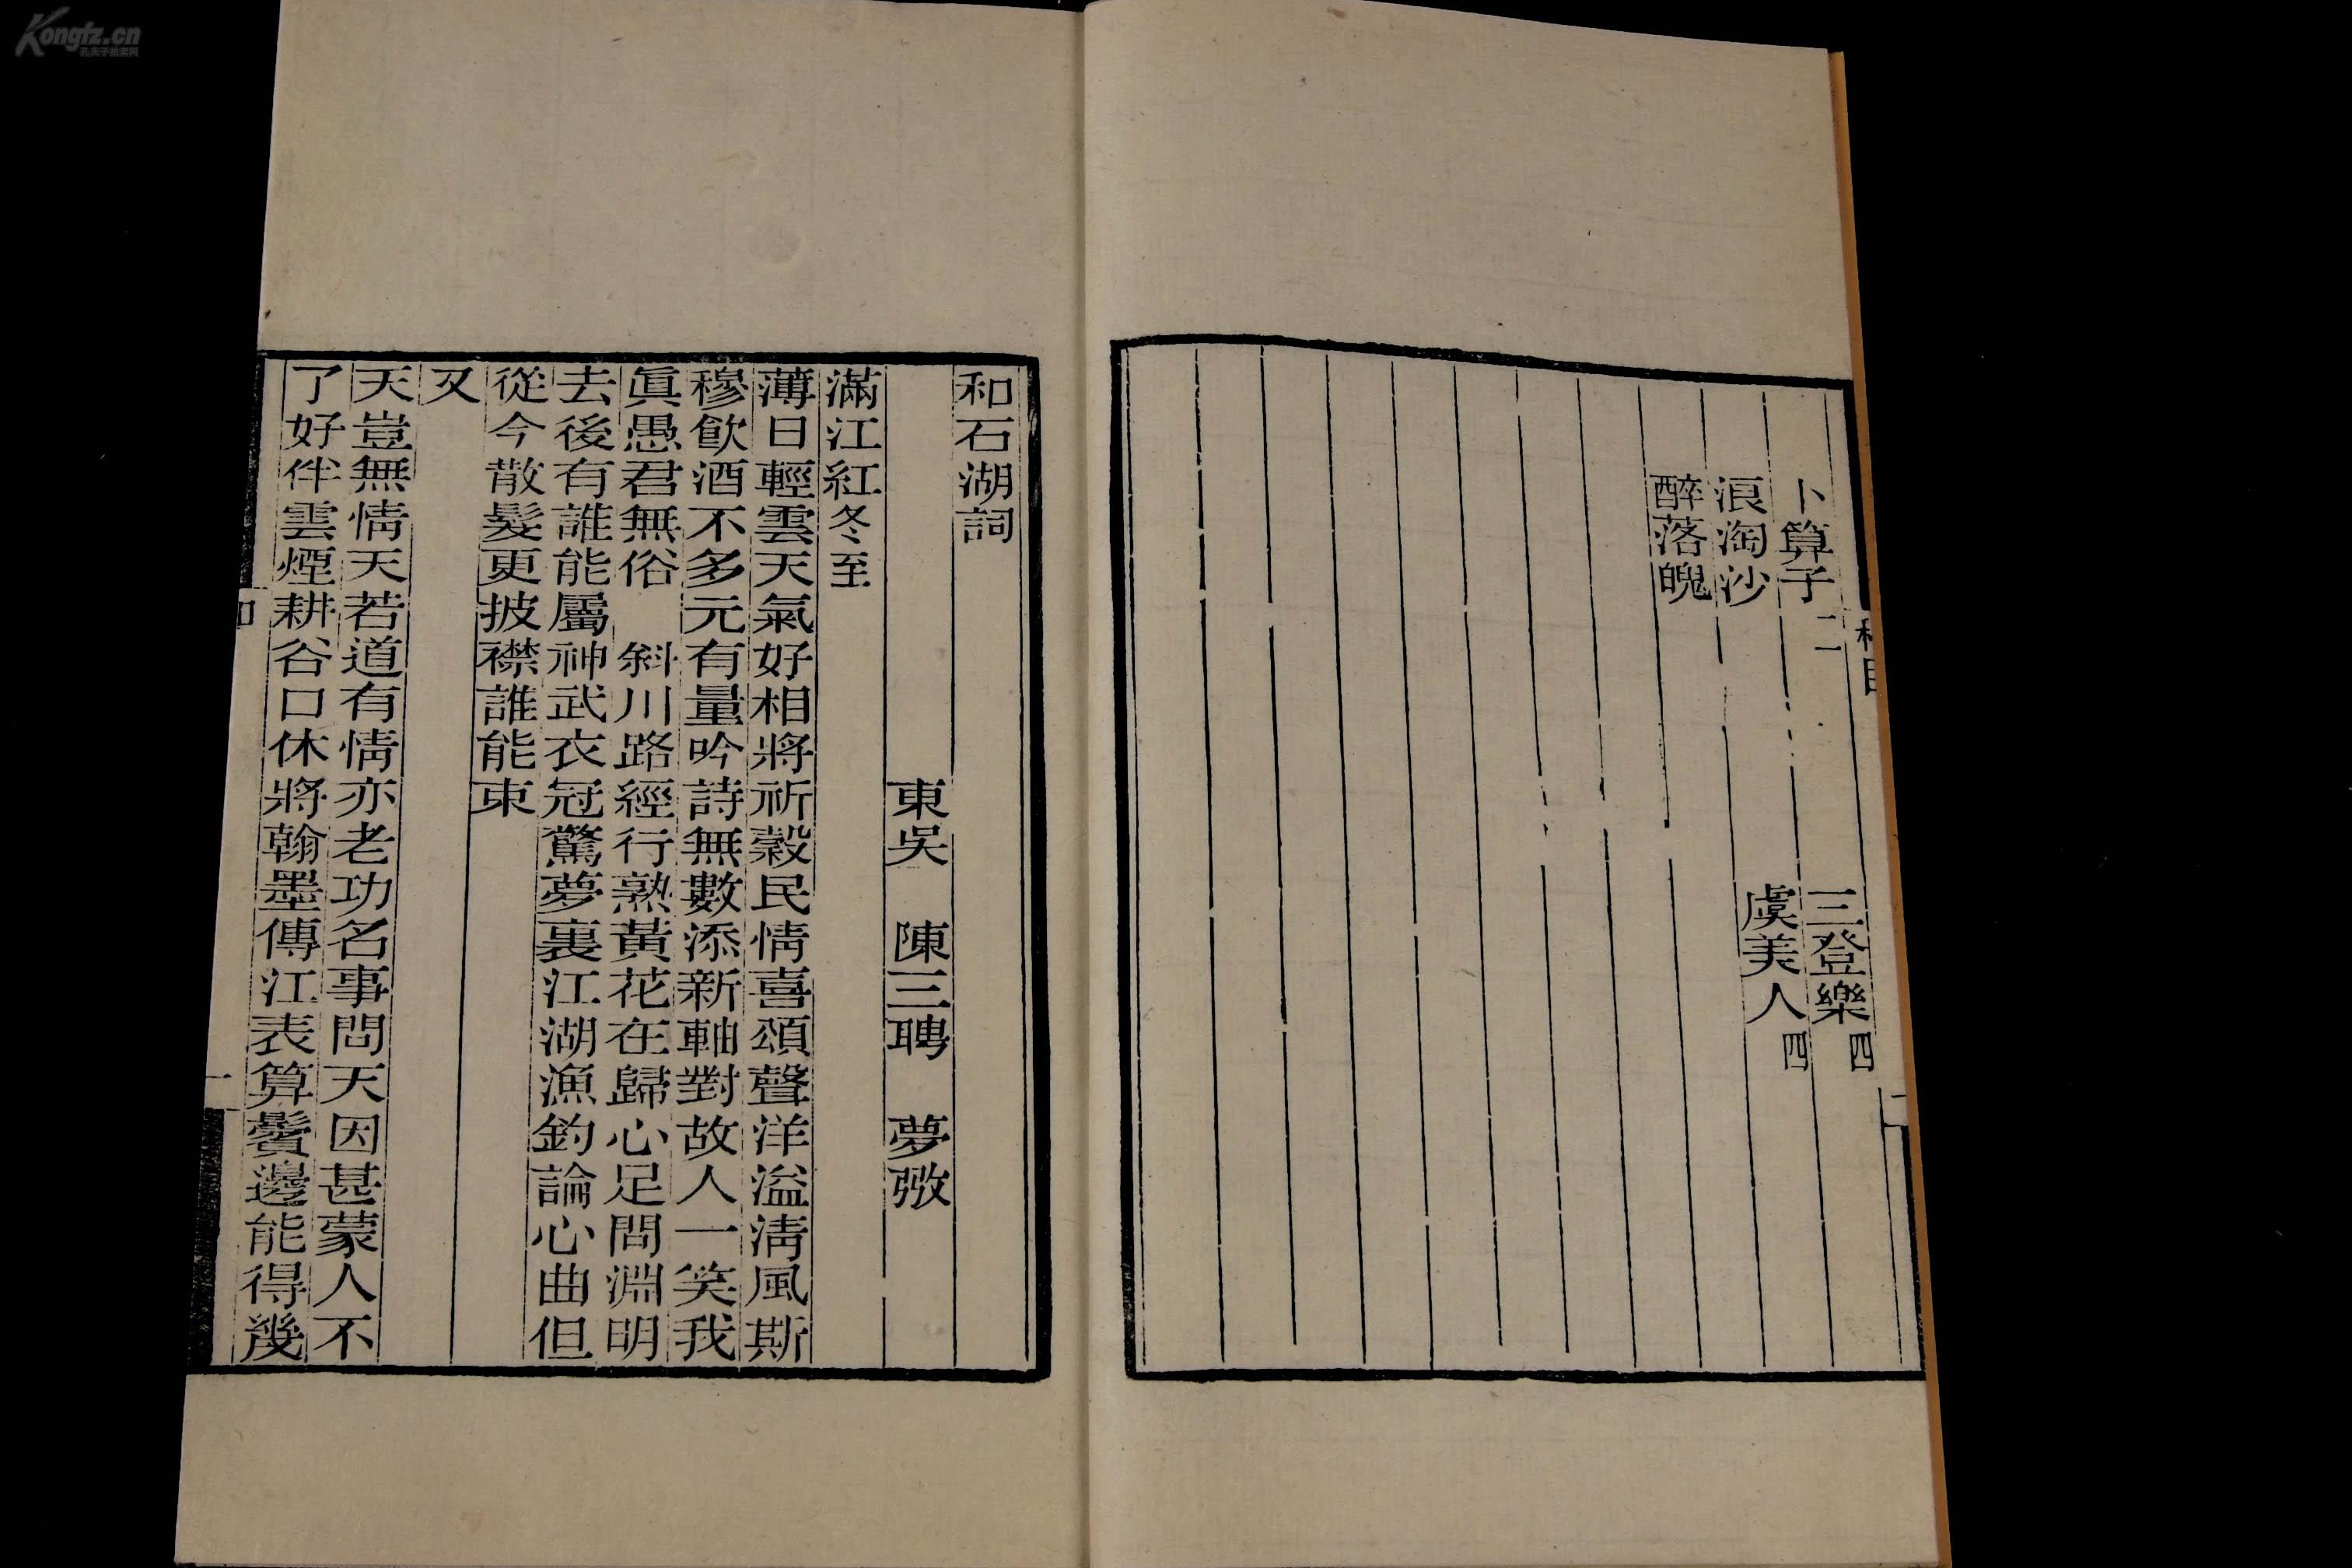 Kongfz.cn
卜算子二 三登樂四
浪淘沙 虞美人四
醉落魄
和石湖詞
東吳 陳三聘 夢弢
滿江紅冬至
薄日輕雲天氣好相將祈穀民情喜頌聲洋溢淸風斯
穆飮酒不多元有量吟詩無數添新軸對故人一笑我
眞愚君無俗 斜川路經行熟黃花在歸心足問淵明
去後有誰能屬神武衣冠驚夢裏江湖漁釣論心曲但
從今散髮更披襟誰能束
又
天豈無情天若道有情亦老功名事問天因甚蒙人不
了好伴雲煙耕谷口休將翰墨傳江表算鬢邊能得幾